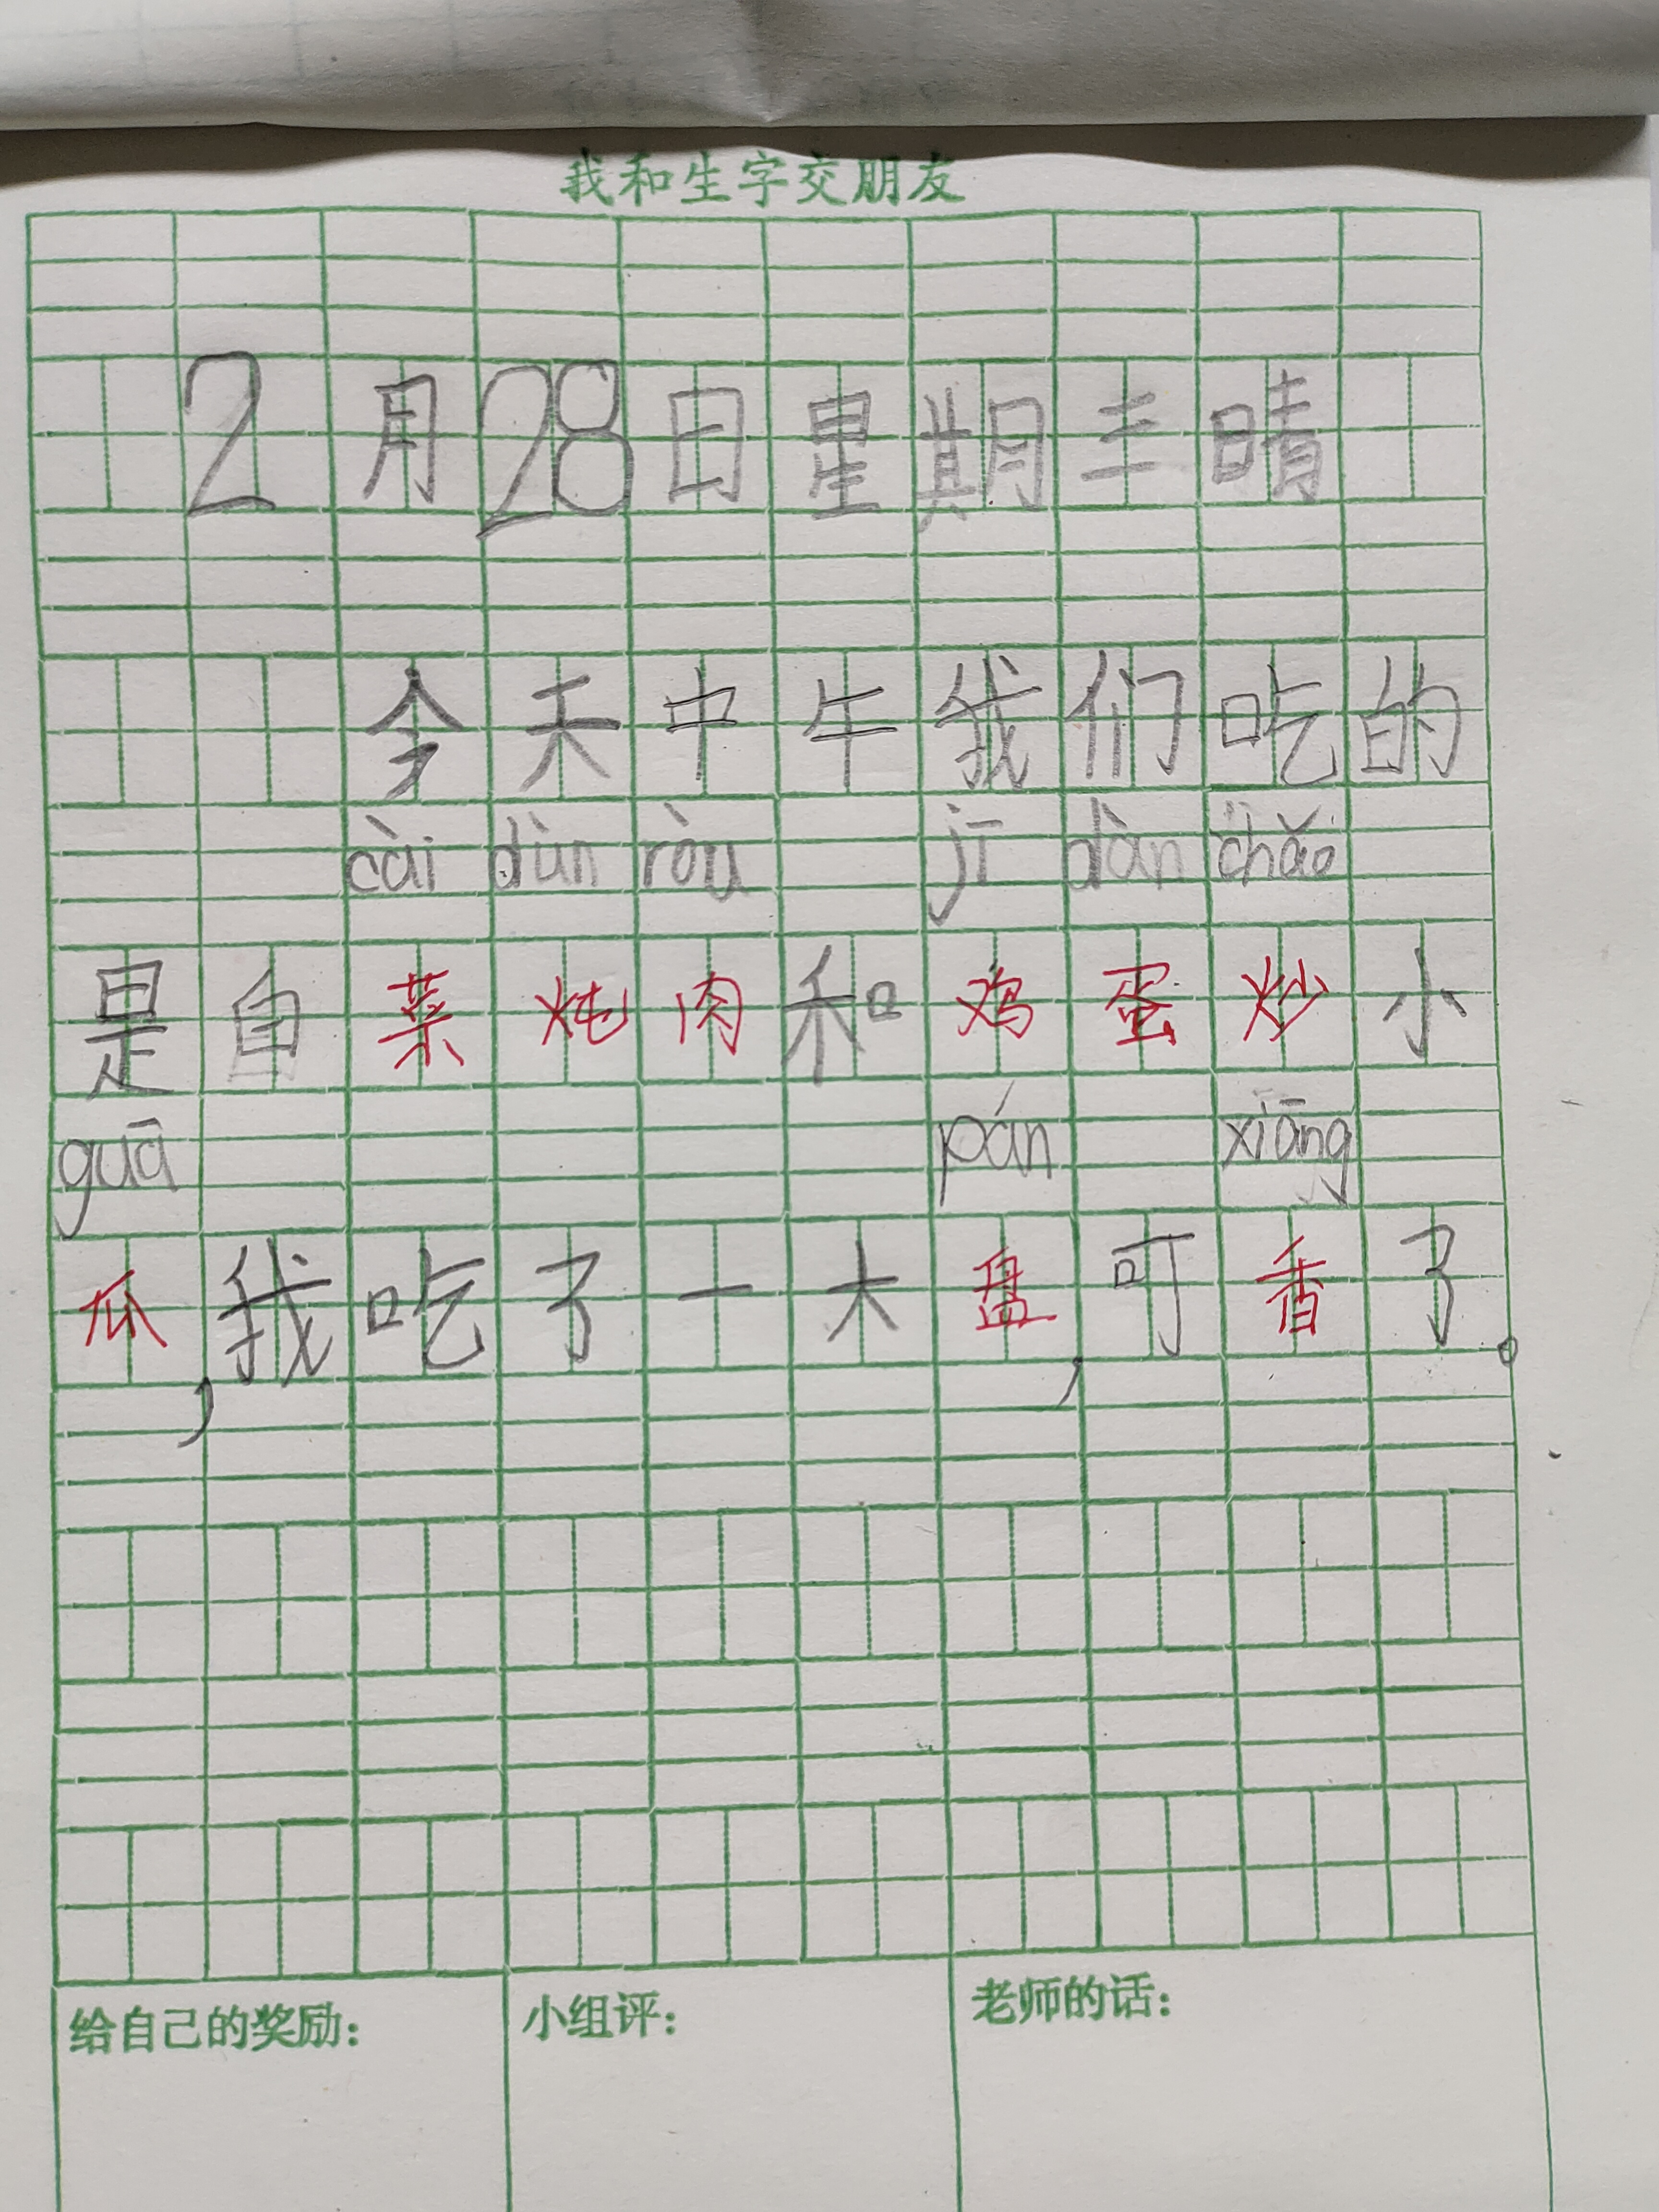 我和生字交朋友
2月28日星期三晴
今天中午我们吃的
cài dùn ròu jī dàn chǎo
是自菜炖肉和鸡蛋炒小
guā pán xiāng
瓜,我吃了一大盘,可香了。
给自己的奖励: 小组评: 老师的话: